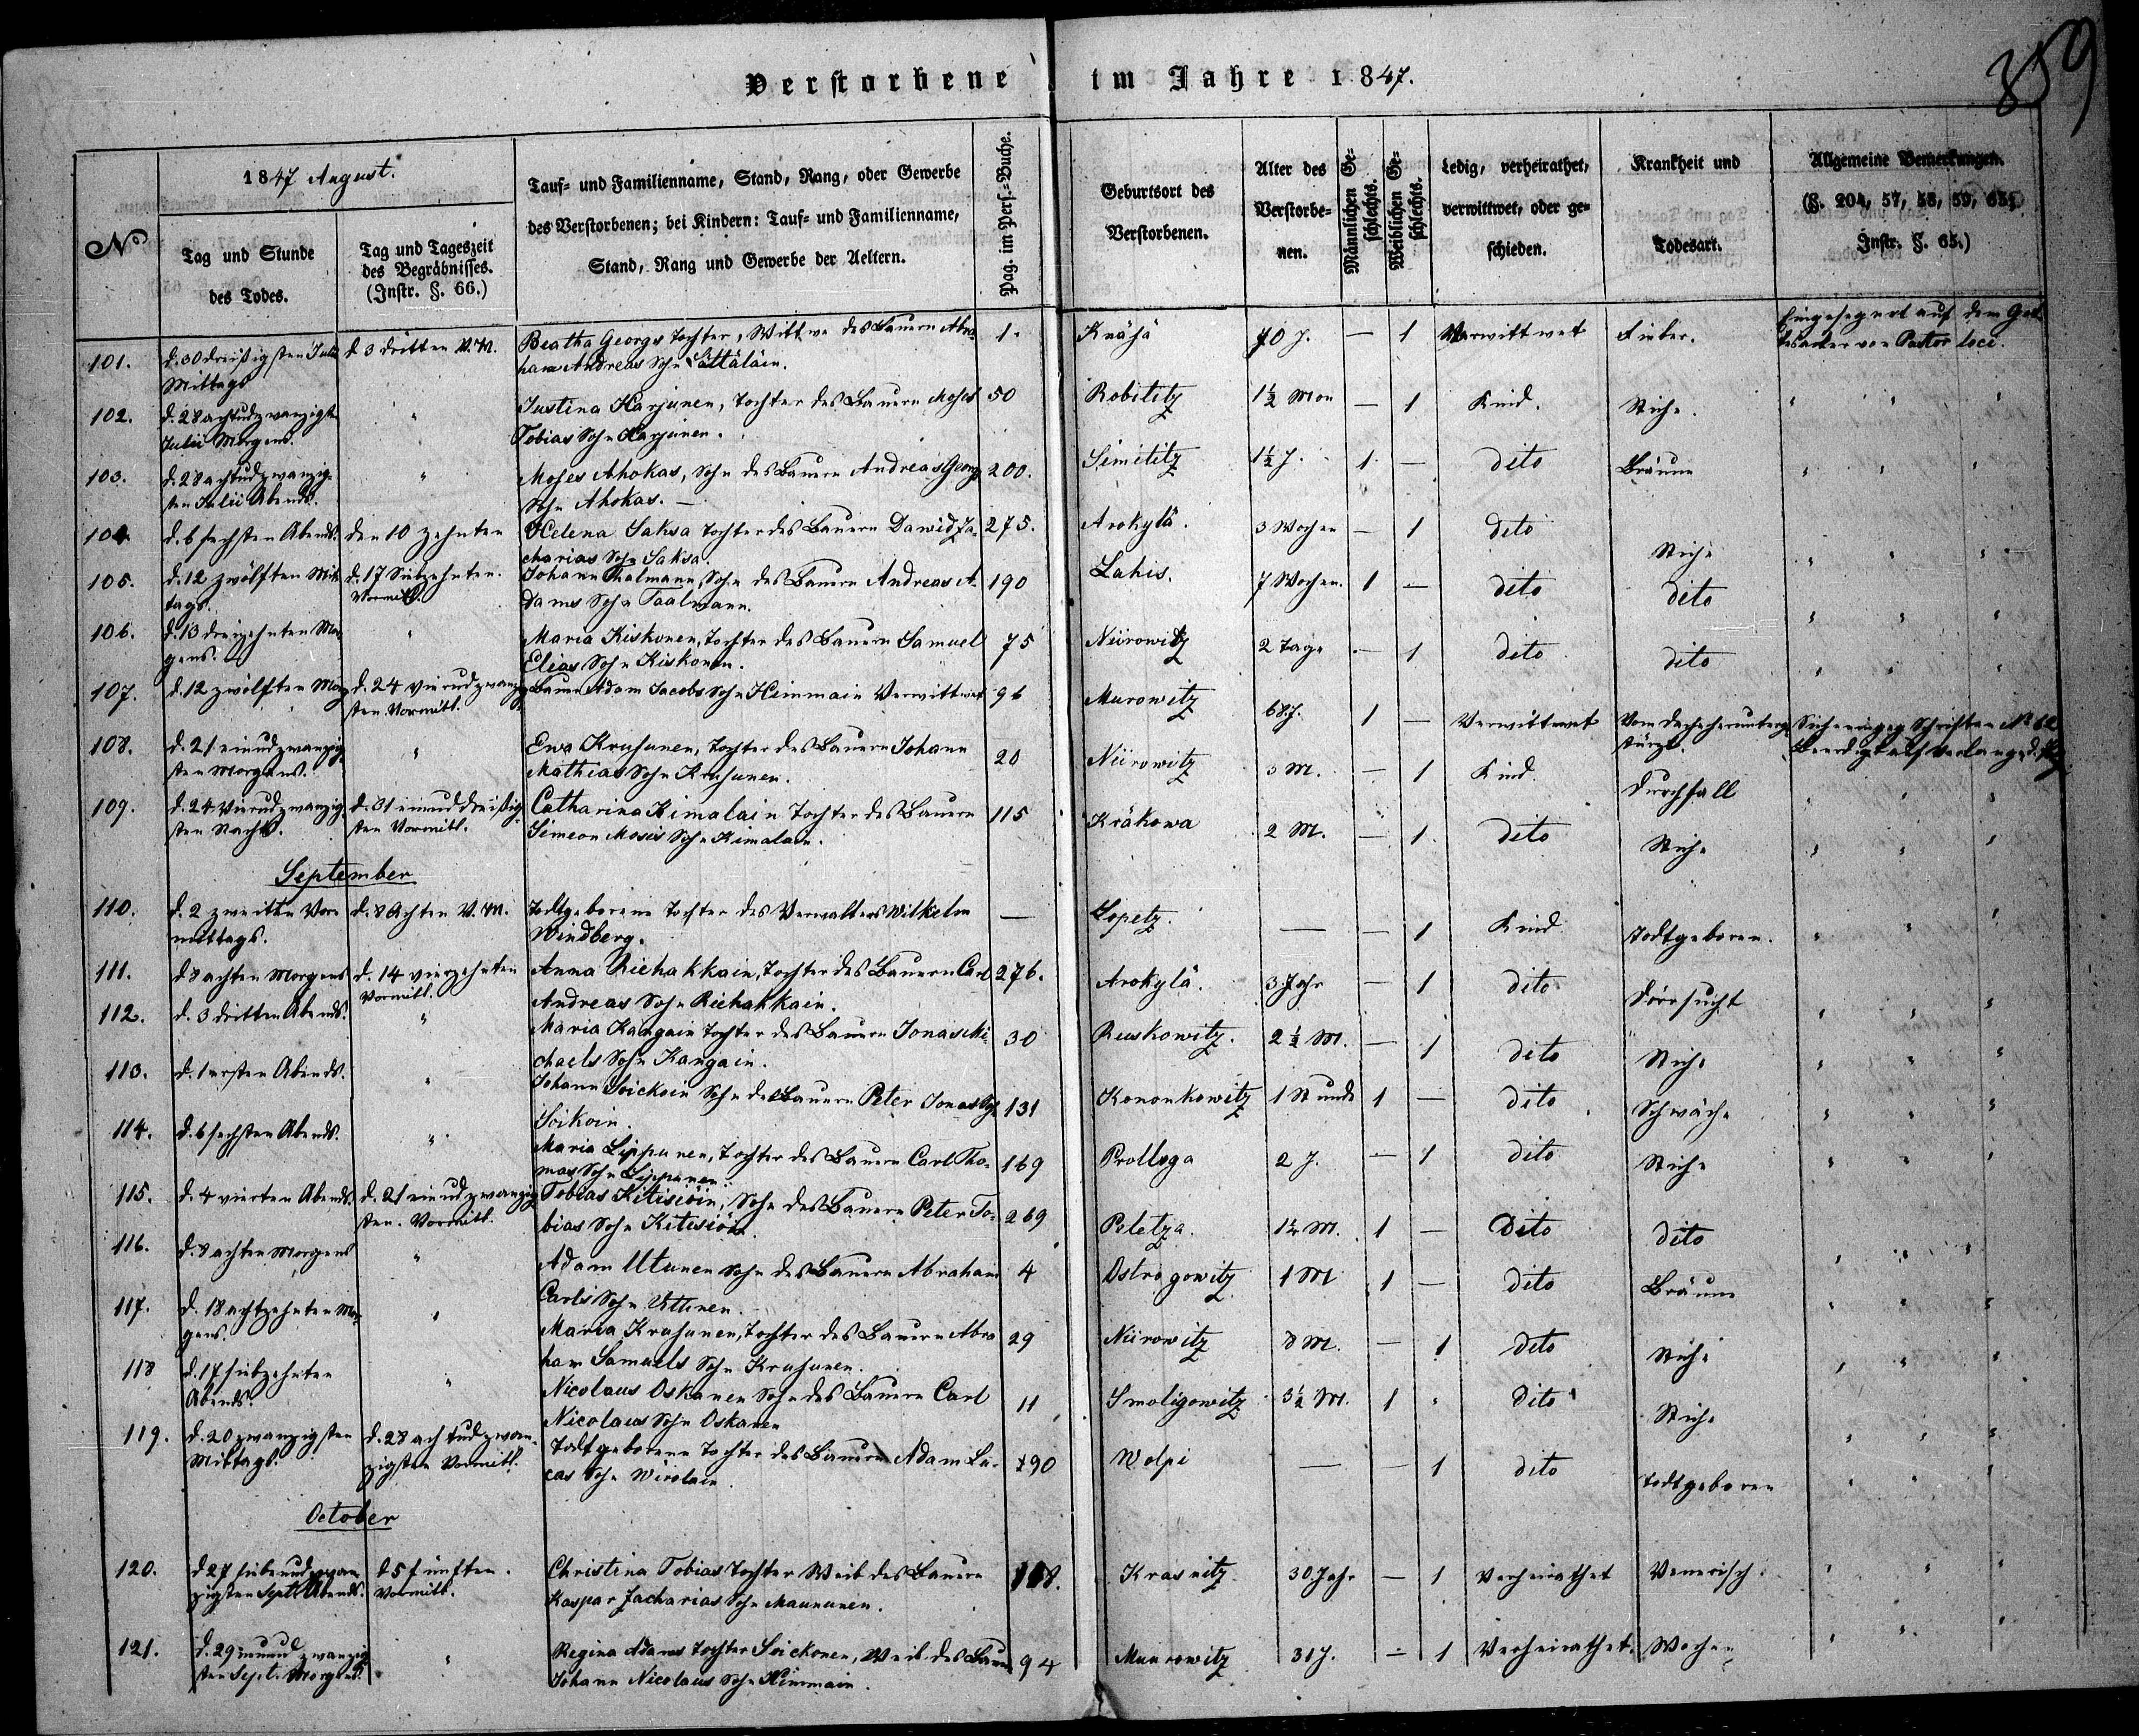 Verstorbene im Jahre 1847.
359
No
1847 August.
Tag und Stunde des Todes.
Tag und Tageszeit des Begräbnisses. (Instr. §. 66.)
Tauf- und Familienname, Stand, Rang, oder Gewerbe
des Verstorbenen; bei Kindern: Tauf- und Familienname,
Stand, Rang und Gewerbe der Aeltern.
Pag. im Pers.-Buche.
Geburtsort des Verstorbenen.
Alter des Verstorbe-nen.
Männlichen Ge-schlechts.
Weiblichen Ge-schlechts.
Ledig, verheirathet, verwittwet, oder ge-schieden.
Krankheit und Todesart.
Allgemeine Bemerkungen.
(§. 204, 57, 58, 59, 65; Instr. §. 65.)
101. d. 30 dreißigsten Julii d 3 dritten V. M. Beatha Georgs Tochter, Wittwe des Bauern Abra- 1. Knäjä 70 J. — 1 Verwittwet Fieber. Eingesegnet auf dem Got-
Mittags ham Andreas Sohn Lättäläin. tesacker von Pastor loci.
102. d. 28 achtudzwanzigsten " Justina Harjunen, Tochter des Bauern Moses 50 Robilitz 1½ Mon — 1 Kind. Stiche. " " "
Julii Morgens. Tobias Sohn Harjunen.
103. d. 28 achtudzwanzig- " Moses Ahokas, Sohn des Bauern Andreas Georg 200. Simititz 1½ J. 1 — dito Bräune " " "
sten Julii Abends. Sohn Ahokas. —
104. d. 6 sechsten Abends. den 10 zehnten Helena Saksa Tochter des Bauern Dawid Za- 275. Arokylä. 3 Wochen — 1 dito Stiche " " "
charias Sohn Saksa.
105. d. 12 zwölften Mit- d. 17 Siebzehnten. Johann Thalmann, Sohn des Bauern Andreas A- 190 Lahis. 7 Wochen. 1 — dito dito " " "
tags. Vormitt. dams Sohn Taalmann.
106. d. 13 dreizehnten Mor- " Maria Kiskonen, Tochter des Bauern Samuel 75 Niirowitz 2 Tage — 1 dito dito " " "
gens. Elias Sohn Kiskonen.
107. d. 12 zwölften Morg. d. 24 vierudzwanzig- Bauer Adam Jacobs Sohn Heimmain Verwittwet 96 Murowitz 68 J. 1 — Verwittwet Vom Dache herunterge- Siehe eingeg Schriften No 62
sten Vormitt. stürzt. Beerdigt auf
108. d. 21 einudzwanzig- " Ewa Kruhunen, Tochter des Bauern Johann 20 Niirowitz 3 M. — 1 Kind. Durchfall " " "
sten Morgens. Mathias Sohn Kruhunen.
109. d. 24 vierudzwanzig- d. 31 einuddreißig- Catharina Himalain Tochter des Bauern 115 Kräkowa 2 M. — 1 dito Stiche " " "
sten Nachts. sten Vormitt. Simeon Moses Sohn Himalain.
September
110. d. 2 zweiten Vor- d. 8 Achten V. M. Todtgeborene Tochter des Verwalters Wilhelm — Lopetz. — — 1 Kind Todtgeboren. " " "
mittags. Windberg.
111. d 8 achten Morgens d. 14 vierzehnten Anna Riehakkain, Tochter des Bauern Carl 276. Arokylä. 3 Jahr — 1 dito Dörrsucht " " "
Vormitt. Andreas Sohn Riehakkain.
112. d. 3 dritten Abends. " Maria Kangain Tochter des Bauern Jonas Mi- 30 Ruskowitz. 2½ M. — 1 dito Stiche " " "
chaels Sohn Kangain.
113. d. 1 ersten Abends. " Johann Soickoin Sohn des Bauern Peter Jonas Sohn 131 Kononkowitz 1 Stunde 1 — dito Schwäche " " "
Soikoin.
114. d. 6 sechsten Abends. " Maria Lippunen, Tochter des Bauern Carl Tho- 169 Prologa 2 J. — 1 dito Stiche " " "
mas Sohn Lippunen.
115. d. 4 vierten Abends. d. 21 einudzwanzig- Tobias Kitisiöin, Sohn des Bauern Peter To- 269 Peletza. 1½ M. 1 — dito dito " " "
sten. Vormitt. bias Sohn Kitisiöin.
116. d. 8 achten Morgens " Adam Utunen Sohn des Bauern Abraham 4 Ostrogowitz 1 M 1 — dito Bräune " " "
Carls Sohn Uttinen.
117. d. 18 achtzehnten Mor- " Maria Kruhunen, Tochter des Bauern Abra 29 Niirowitz 8 M. — 1 dito Stiche " " "
gens. ham Samuels Sohn Kruhunen.
118 d. 17 siebzehnten " Nicolaus Oskanen Sohn des Bauern Carl 11 Smoligowitz 3½ M. 1 " dito Stiche " " "
Abends. Nicolaus Sohn Oskanen
119. d. 20 zwanzigsten d. 28 achtudzwan- Todtgeborene Tochter des Bauern Adam Lu- 190 Wolpi — — 1 dito Todtgeboren " " "
Mittags. zigsten Vormitt. cas Sohn Wirolain
October
120. d 27 siebenudzwan- d 5 fünften. Christina Tobias Tochter Weib des Bauern 108. Krasnitz 30 Jahr — 1 Verheirathet Venerisch. " " "
zigsten Sept. Abends. Vormitt. Kaspar Zacharias Sohn Maununen.
121. d. 29 neunudzwanzig- " Regina Adams Tochter Soickonen, Weib des Bauern 94 Muurowitz 31 J. — 1 Verheirathet. Wochen " " "
sten Sept. Morgens. Johann Nicolaus Sohn Himmain.